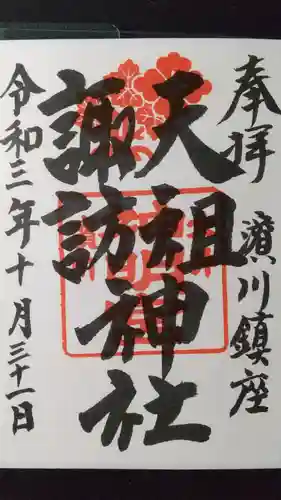 奉拝 濱川鎮座
天祖神社
諏訪
令和三年十月三十一日